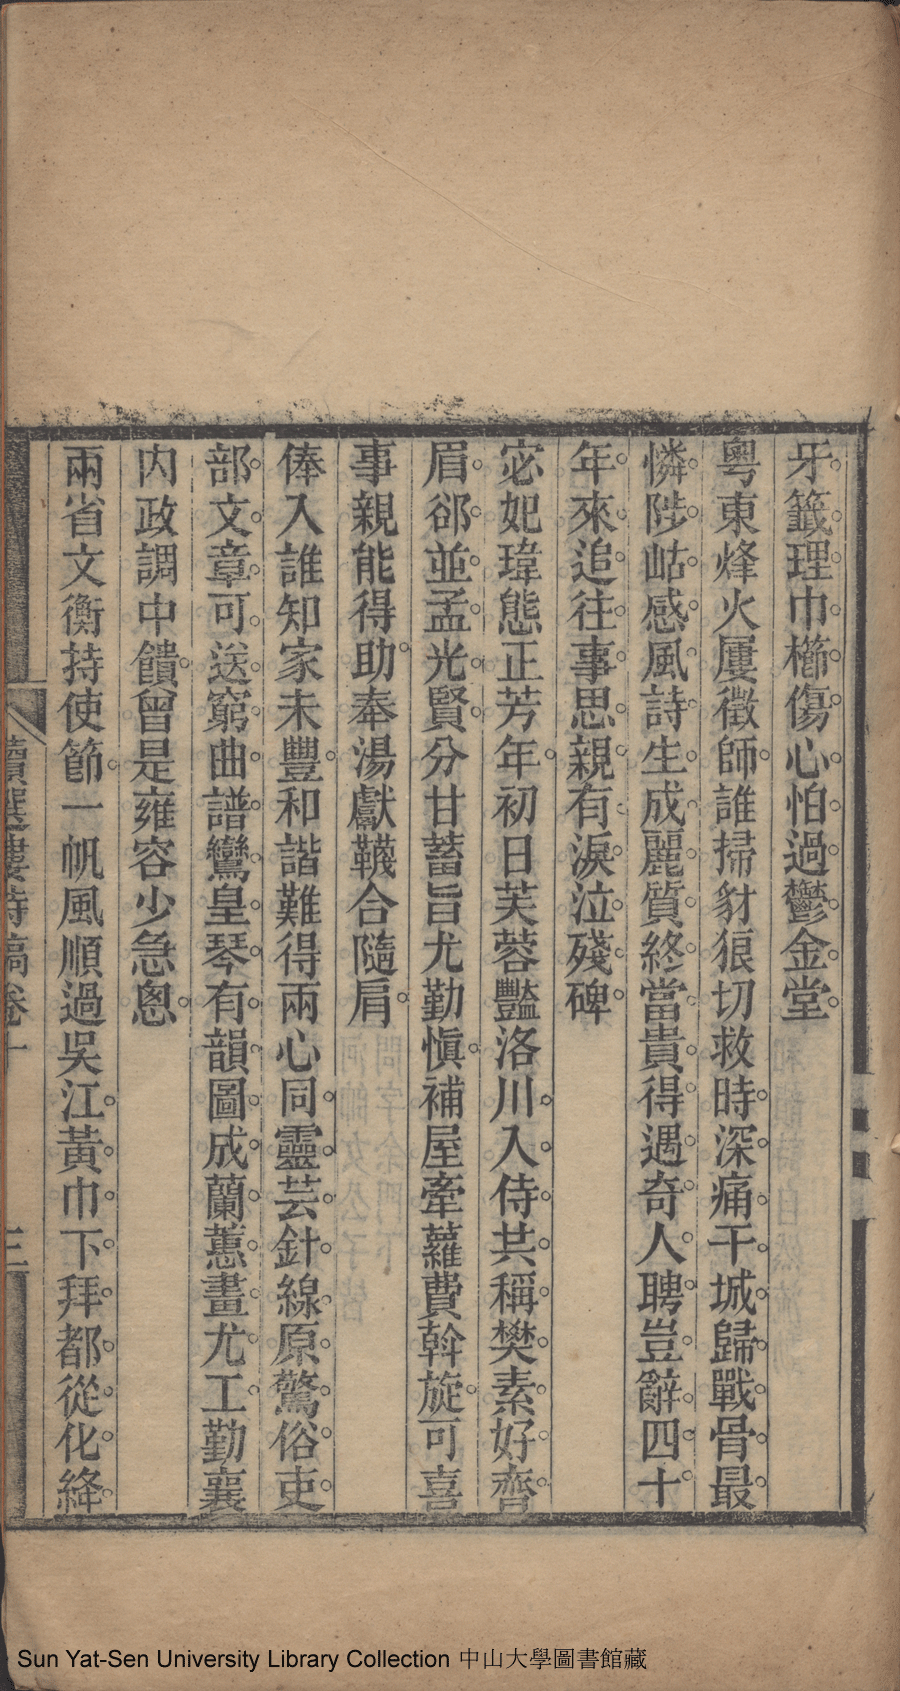 牙籤理巾櫛傷心怕過鬱金堂
粵東烽火屢徵師誰掃豺狼切救時深痛干城歸戰骨最
憐陟岵感風詩生成麗質終當貴得遇奇人聘豈辭四十
年來追往事思親有淚泣殘碑
宓妃瑋態正芳年初日芙蓉豔洛川入侍共稱樊素好齊
眉郤並孟光賢分甘蓄旨尤勤愼補屋牽蘿費斡旋可喜
事親能得助奉湯獻韈合隨肩
俸入誰知家未豐和諧難得兩心同靈芸針線原驚俗吏
部文章可送窮曲譜鸞皇琴有韻圖成蘭蕙畫尤工勤襄
内政調中饋曾是雍容少急悤
兩省文衡持使節一帆風順過吳江黃巾下拜都從化絳
讀選樓詩稿卷十
三
Sun Yat-Sen University Library Collection 中山大學圖書館藏